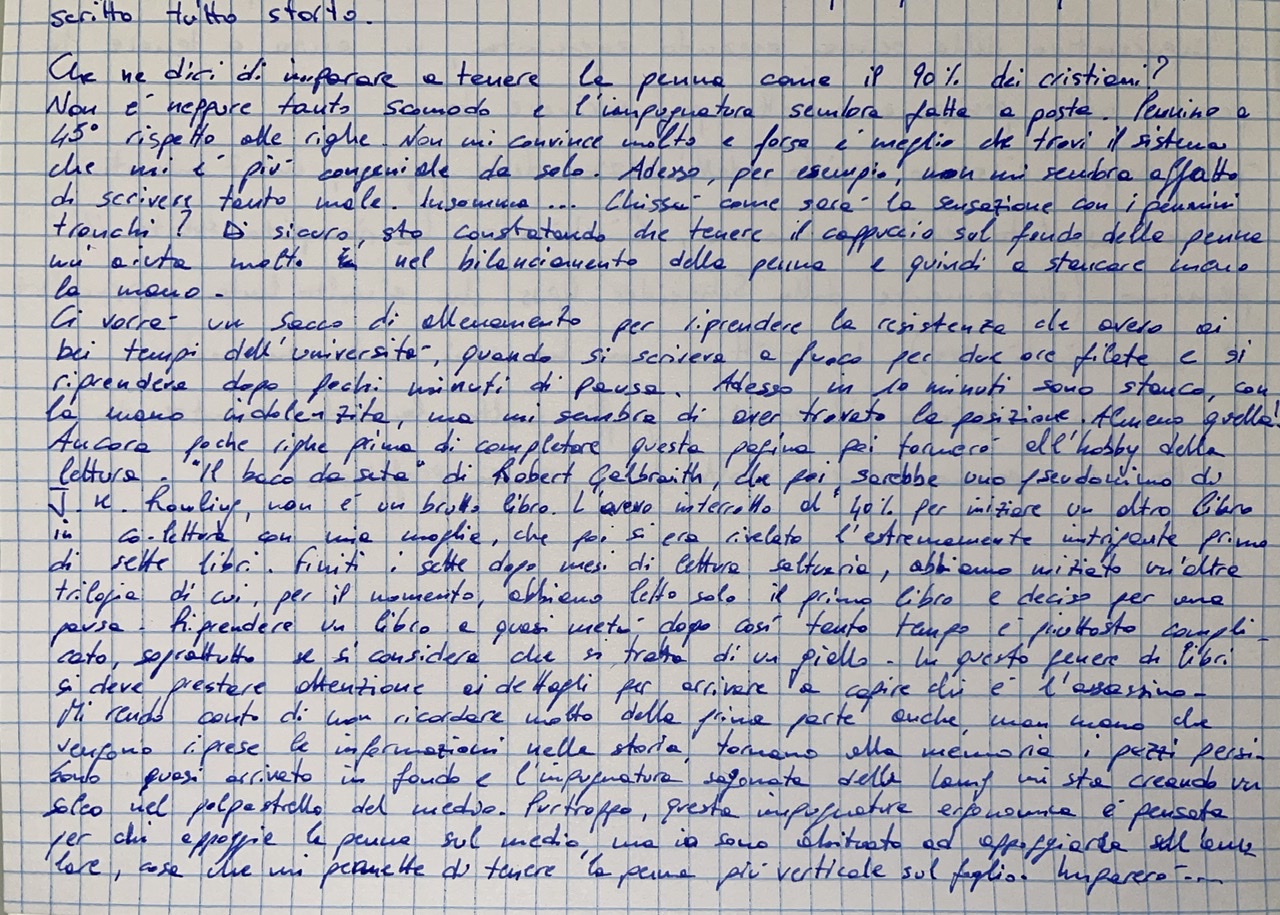 scritto tutto storto.
Che ne dici di imparare a tenere la penna come il 90% dei cristiani?
Non è neppure tanto scomodo e l'impugnatura sembra fatta a posta. Pennino a
45° rispetto alle righe. Non mi convince molto e forse è meglio che trovi il sistema
che mi è più congeniale da solo. Adesso, per esempio, non mi sembra affatto
di scrivere tanto male. Insomma... Chissà come sarà la sensazione con i pennini
tronchi? Di sicuro, sto constatando che tenere il cappuccio sul fondo della penna
mi aiuta molto nel bilanciamento della penna e quindi a stancare meno
la mano.
Ci vorrà un sacco di allenamento per riprendere la resistenza che avevo ai
bei tempi dell'università, quando si scriveva a fuoco per due ore filate e si
riprendeva dopo pochi minuti di pausa. Adesso in 10 minuti sono stanco, con
la mano indolenzita, ma mi sembra di aver trovato la posizione. Almeno quella!
Ancora poche righe prima di completare questa pagina poi tornerò all'hobby della
lettura. "Il baco da seta" di Robert Galbraith, che poi sarebbe uno pseudonimo di
J. K. Rowling, non è un brutto libro. L'avevo interrotto al 40% per iniziare un altro libro
in co-lettura con mia moglie, che poi si era rivelato l'estremamente intrigante primo
di sette libri. Finiti i sette dopo mesi di lettura saltuaria, abbiamo iniziato un'altra
trilogia di cui, per il momento, abbiamo letto solo il primo libro e deciso per una
pausa. Riprendere un libro a quasi metà dopo così tanto tempo è piuttosto compli-
cato, soprattutto se si considera che si tratta di un giallo. In questo genere di libri
si deve prestare attenzione ai dettagli per arrivare a capire chi è l'assassino.
Mi rendo conto di non ricordare molto della prima parte anche, man mano che
vengono riprese le informazioni nella storia, tornano alla memoria i pezzi persi.
Sono quasi arrivato in fondo e l'impugnatura sagomata della Lamy mi sta creando un
solco nel polpastrello del medio. Purtroppo, questa impugnatura ergonomica è pensata
per chi appoggia la penna sul medio, ma io sono abituato ad appoggiarla sull'anu-
lare, cosa che mi permette di tenere la penna più verticale sul foglio. Imparerò...